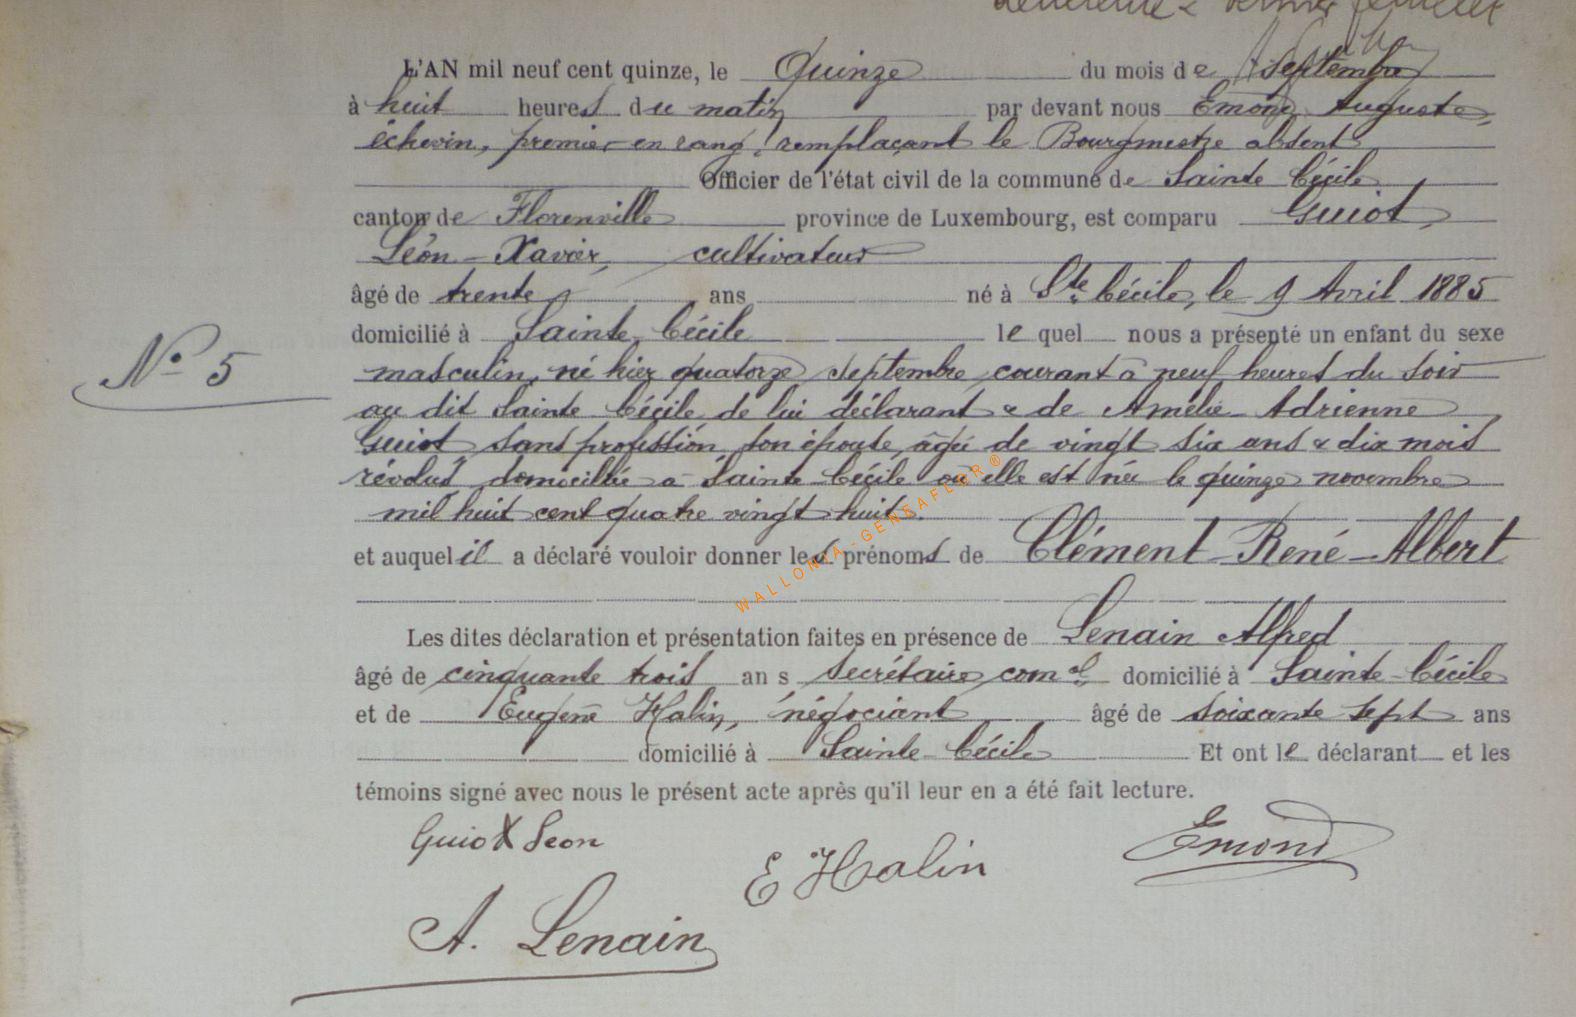 dernier feuillet
L'AN mil neuf cent quinze, le Quinze du mois de Septembre
à huit heures du matin par devant nous Emond, Auguste,
échevin, premier en rang, remplaçant le Bourgmestre absent
Officier de l'état civil de la commune de Sainte Cécile
canton de Florenville province de Luxembourg, est comparu Guiot,
Léon-Xavier, cultivateur
âgé de trente ans né à Ste Cécile, le 9 Avril 1885
domicilié à Sainte-Cécile lequel nous a présenté un enfant du sexe
N° 5
masculin, né hier quatorze septembre courant à neuf heures du soir
au dit Sainte Cécile de lui déclarant & de Amélie Adrienne
Guiot sans profession, son épouse, âgée de vingt six ans & dix mois
révolus, domiciliée à Sainte-Cécile où elle est née le quinze novembre
mil huit cent quatre vingt huit.
et auquel il a déclaré vouloir donner les prénoms de Clément-René-Albert
WALLONIA-GENEAFLOR®
Les dites déclaration et présentation faites en présence de Lenain Alfred
âgé de cinquante trois ans secrétaire comal domicilié à Sainte-Cécile
et de Eugène Halin, négociant âgé de soixante sept ans
domicilié à Sainte-Cécile Et ont le déclarant et les
témoins signé avec nous le présent acte après qu'il leur en a été fait lecture.
Guiot Leon
E Halin
Emond
A. Lenain